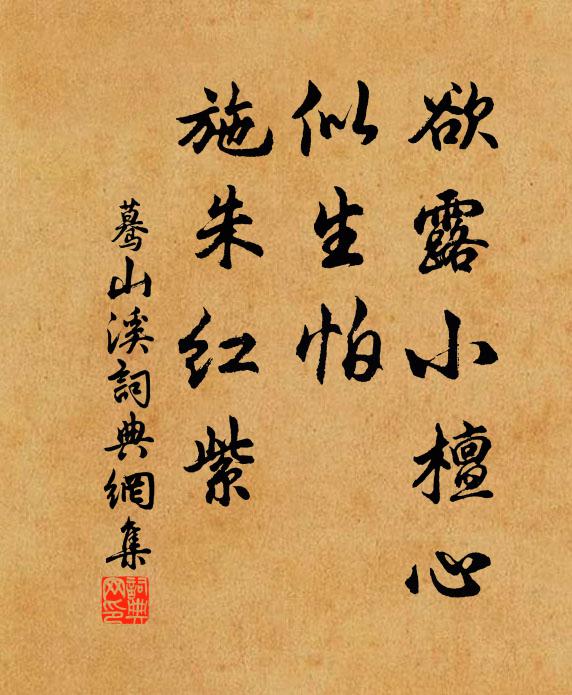 欲露小檀心
似生怕
施朱红紫
蓦山溪詞典網集
詞典网印